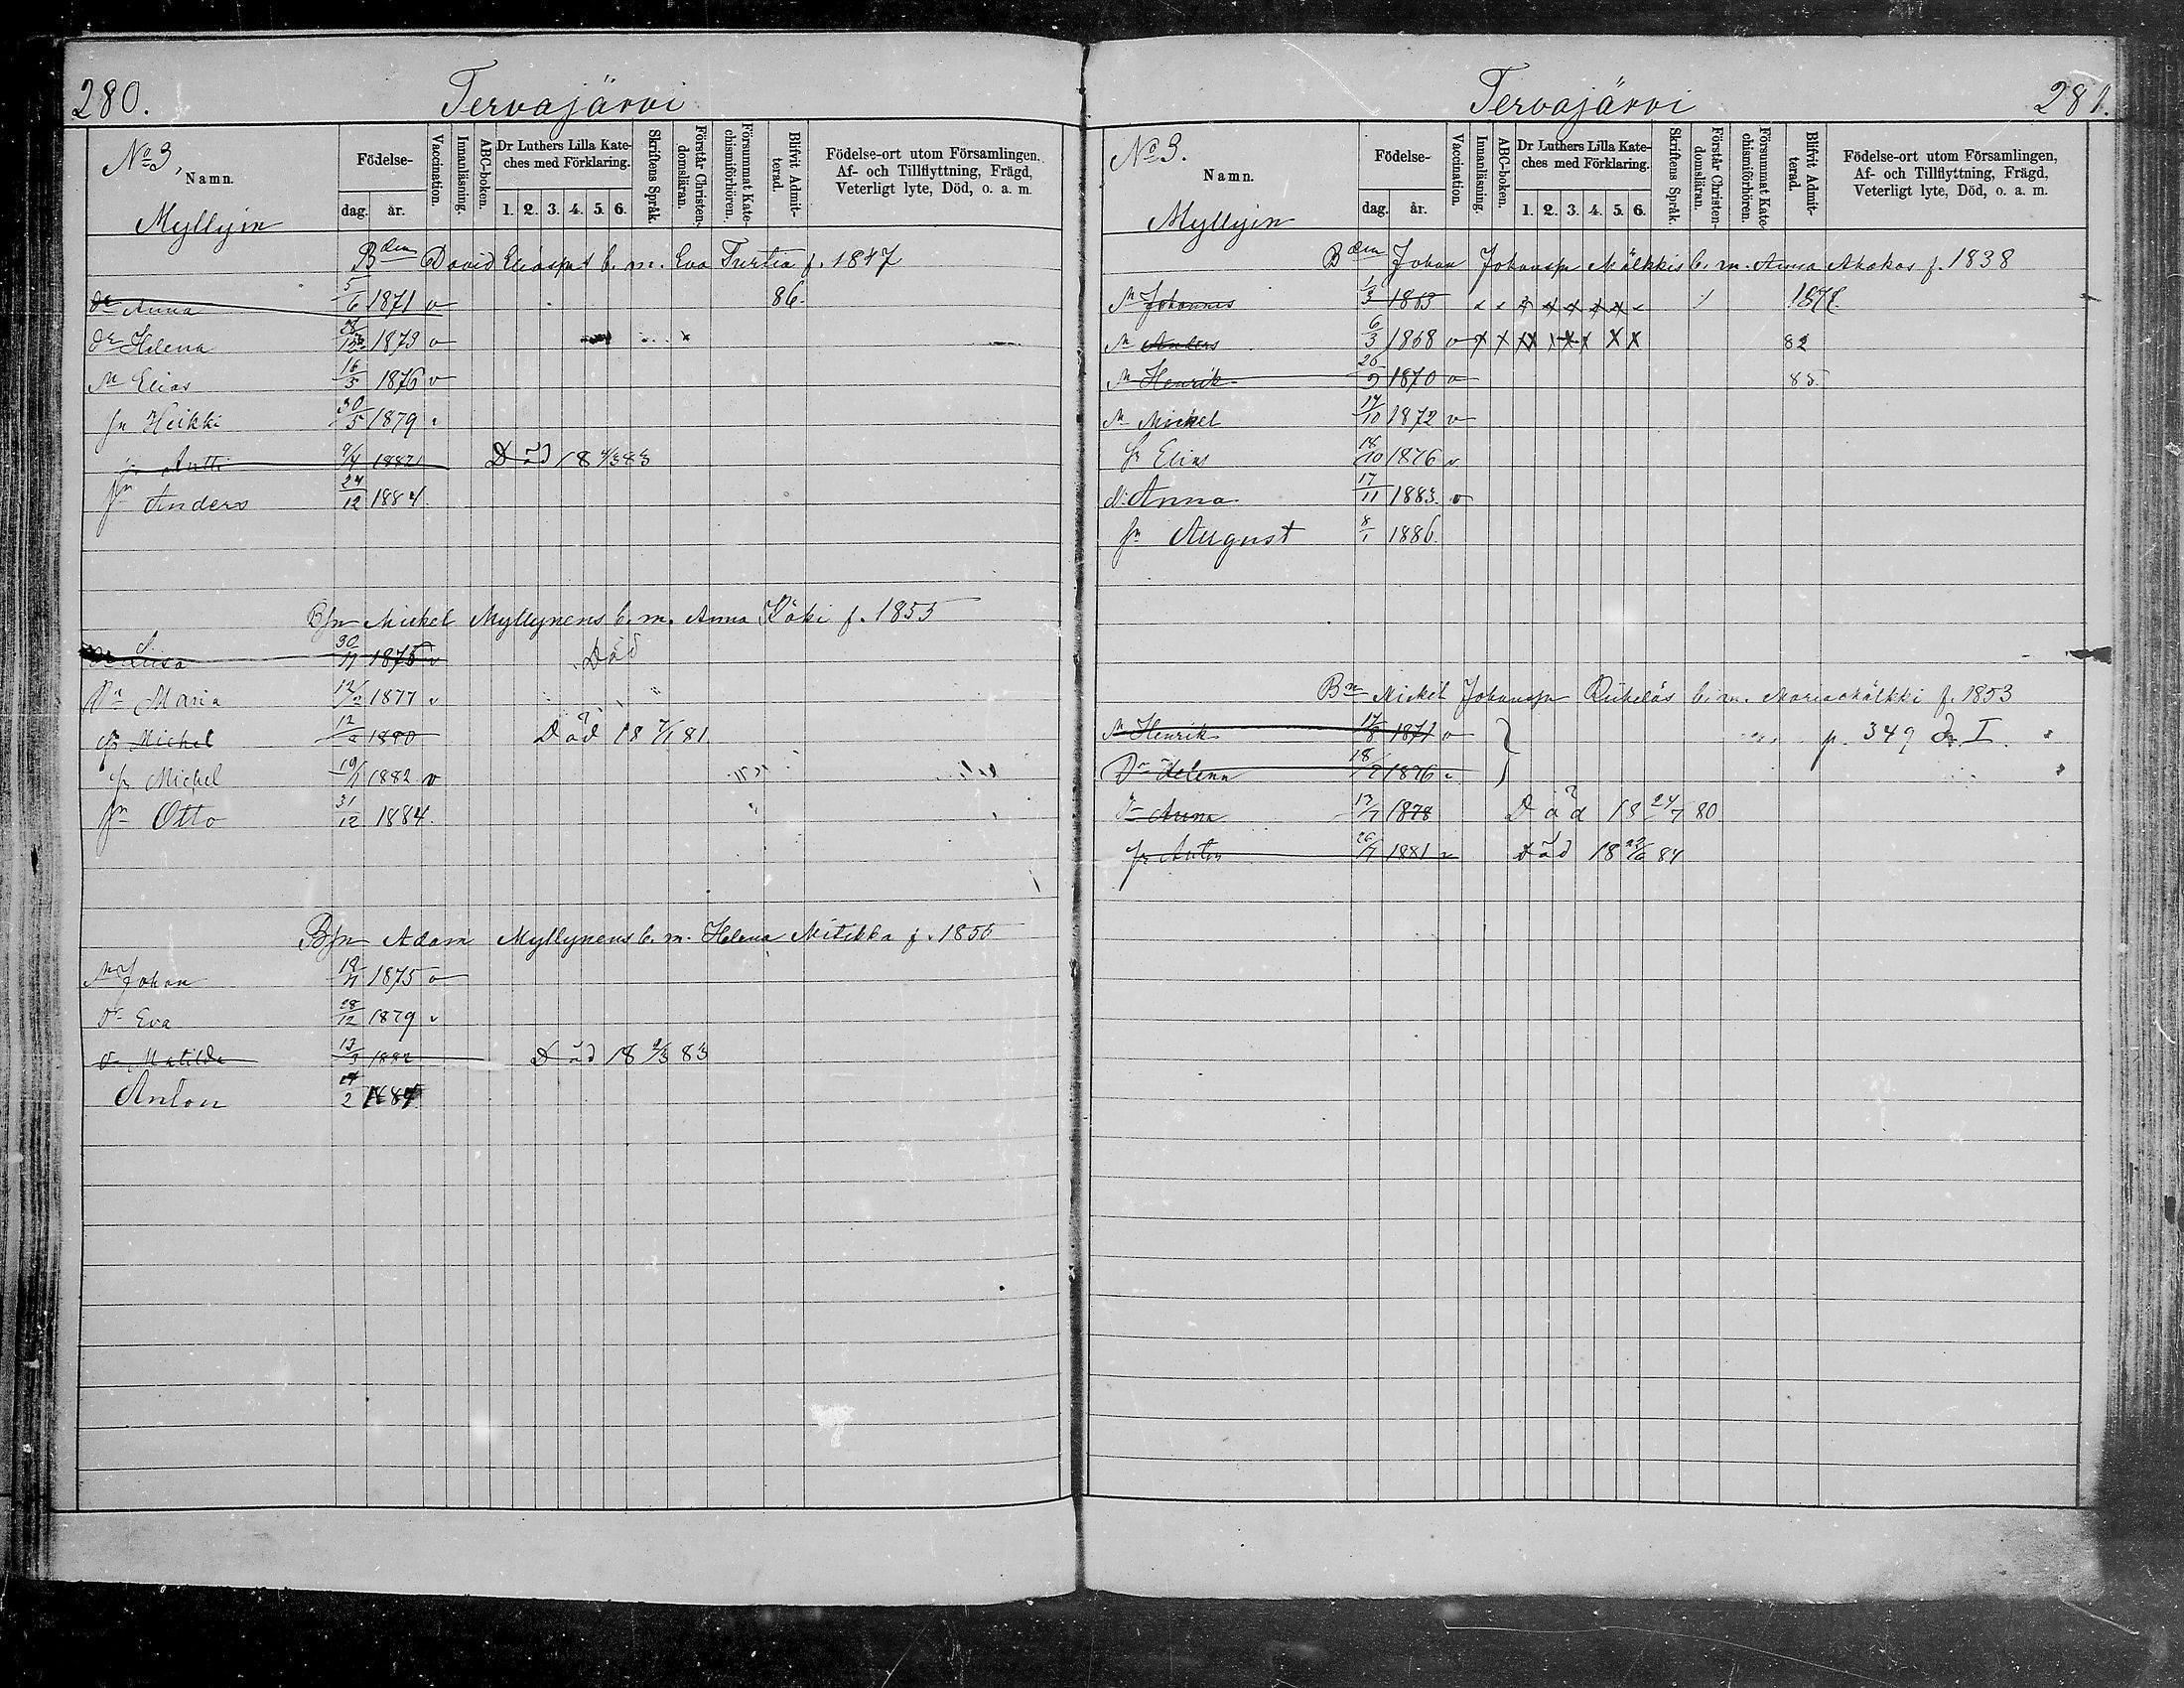 280. Tervajärvi
No 3, Namn. Födelse- dag. år. Vaccination. Innanläsning. ABC-boken. Dr Luthers Lilla Kateches med Förklaring. 1. 2. 3. 4. 5. 6. Skriftens Språk. Förstår Christendomsläran. Försummat Katechismiförhören. Blifvit Admitterad. Födelse-ort utom Församlingen. Af- och Tillflyttning, Frägd, Veterligt lyte, Död, o. a. m.
Myllyin
Bden David Eliasps b. m. Eva Turtia f. 1847
dr Anna 5/6 1871 v 86.
dr Helena 1873 v
Elias 16/5 1876 v
sn Heikki 30/5 1879
Antti 1882 Död 18 4/3 83
sn Anders 24/12 1884
Bsn Mickel Myllynens b. m. Anna f. 1855
Liisa 30/11 1875 v Död
Dr Maria 12/2 1877 v
sn Michel 12/2 1880 Död 18 7/1 81
sn Michel 19/1 1882 v
sn Otto 31/12 1884.
Bsn Adam Myllynens b. m. Helena Mitikka f. 1856
Johan 18/11 1875 v
Dr Eva 28/12 1879 v
dr Matilda 13/3 1882 Död 18 2/3 83
Anton 14/2 1884
Tervajärvi 281.
No 3. Namn. Födelse- dag. år. Vaccination. Innanläsning. ABC-boken. Dr Luthers Lilla Kateches med Förklaring. 1. 2. 3. 4. 5. 6. Skriftens Språk. Förstår Christendomsläran. Försummat Katechismiförhören. Blifvit Admitterad. Födelse-ort utom Församlingen, Af- och Tillflyttning, Frägd, Veterligt lyte, Död, o. a. m.
Myllyin
Bden Johan Johansn Mälkkis b. m. Anna Ahokas f. 1838
Johannes 1/3 1863 x x x x x x x x 1878
Anders 6/3 1868 v x x x x x x x x 82
Henrik 26/9 1870 v 85.
Mickel 14/10 1872 v
sn Elias 18/10 1876 v
dr Anna 17/11 1883. v
sn August 8/1 1886.
Bn Mickel Johansn b. m. Maria Mälkki f. 1853
Henrik 17/8 1871 v p. 349 I.
Dr Helena 1876 v
Dr Anna 13/7 1878 Död 18 24/7 80
sn Anton 26/7 1881 v Död 18 84